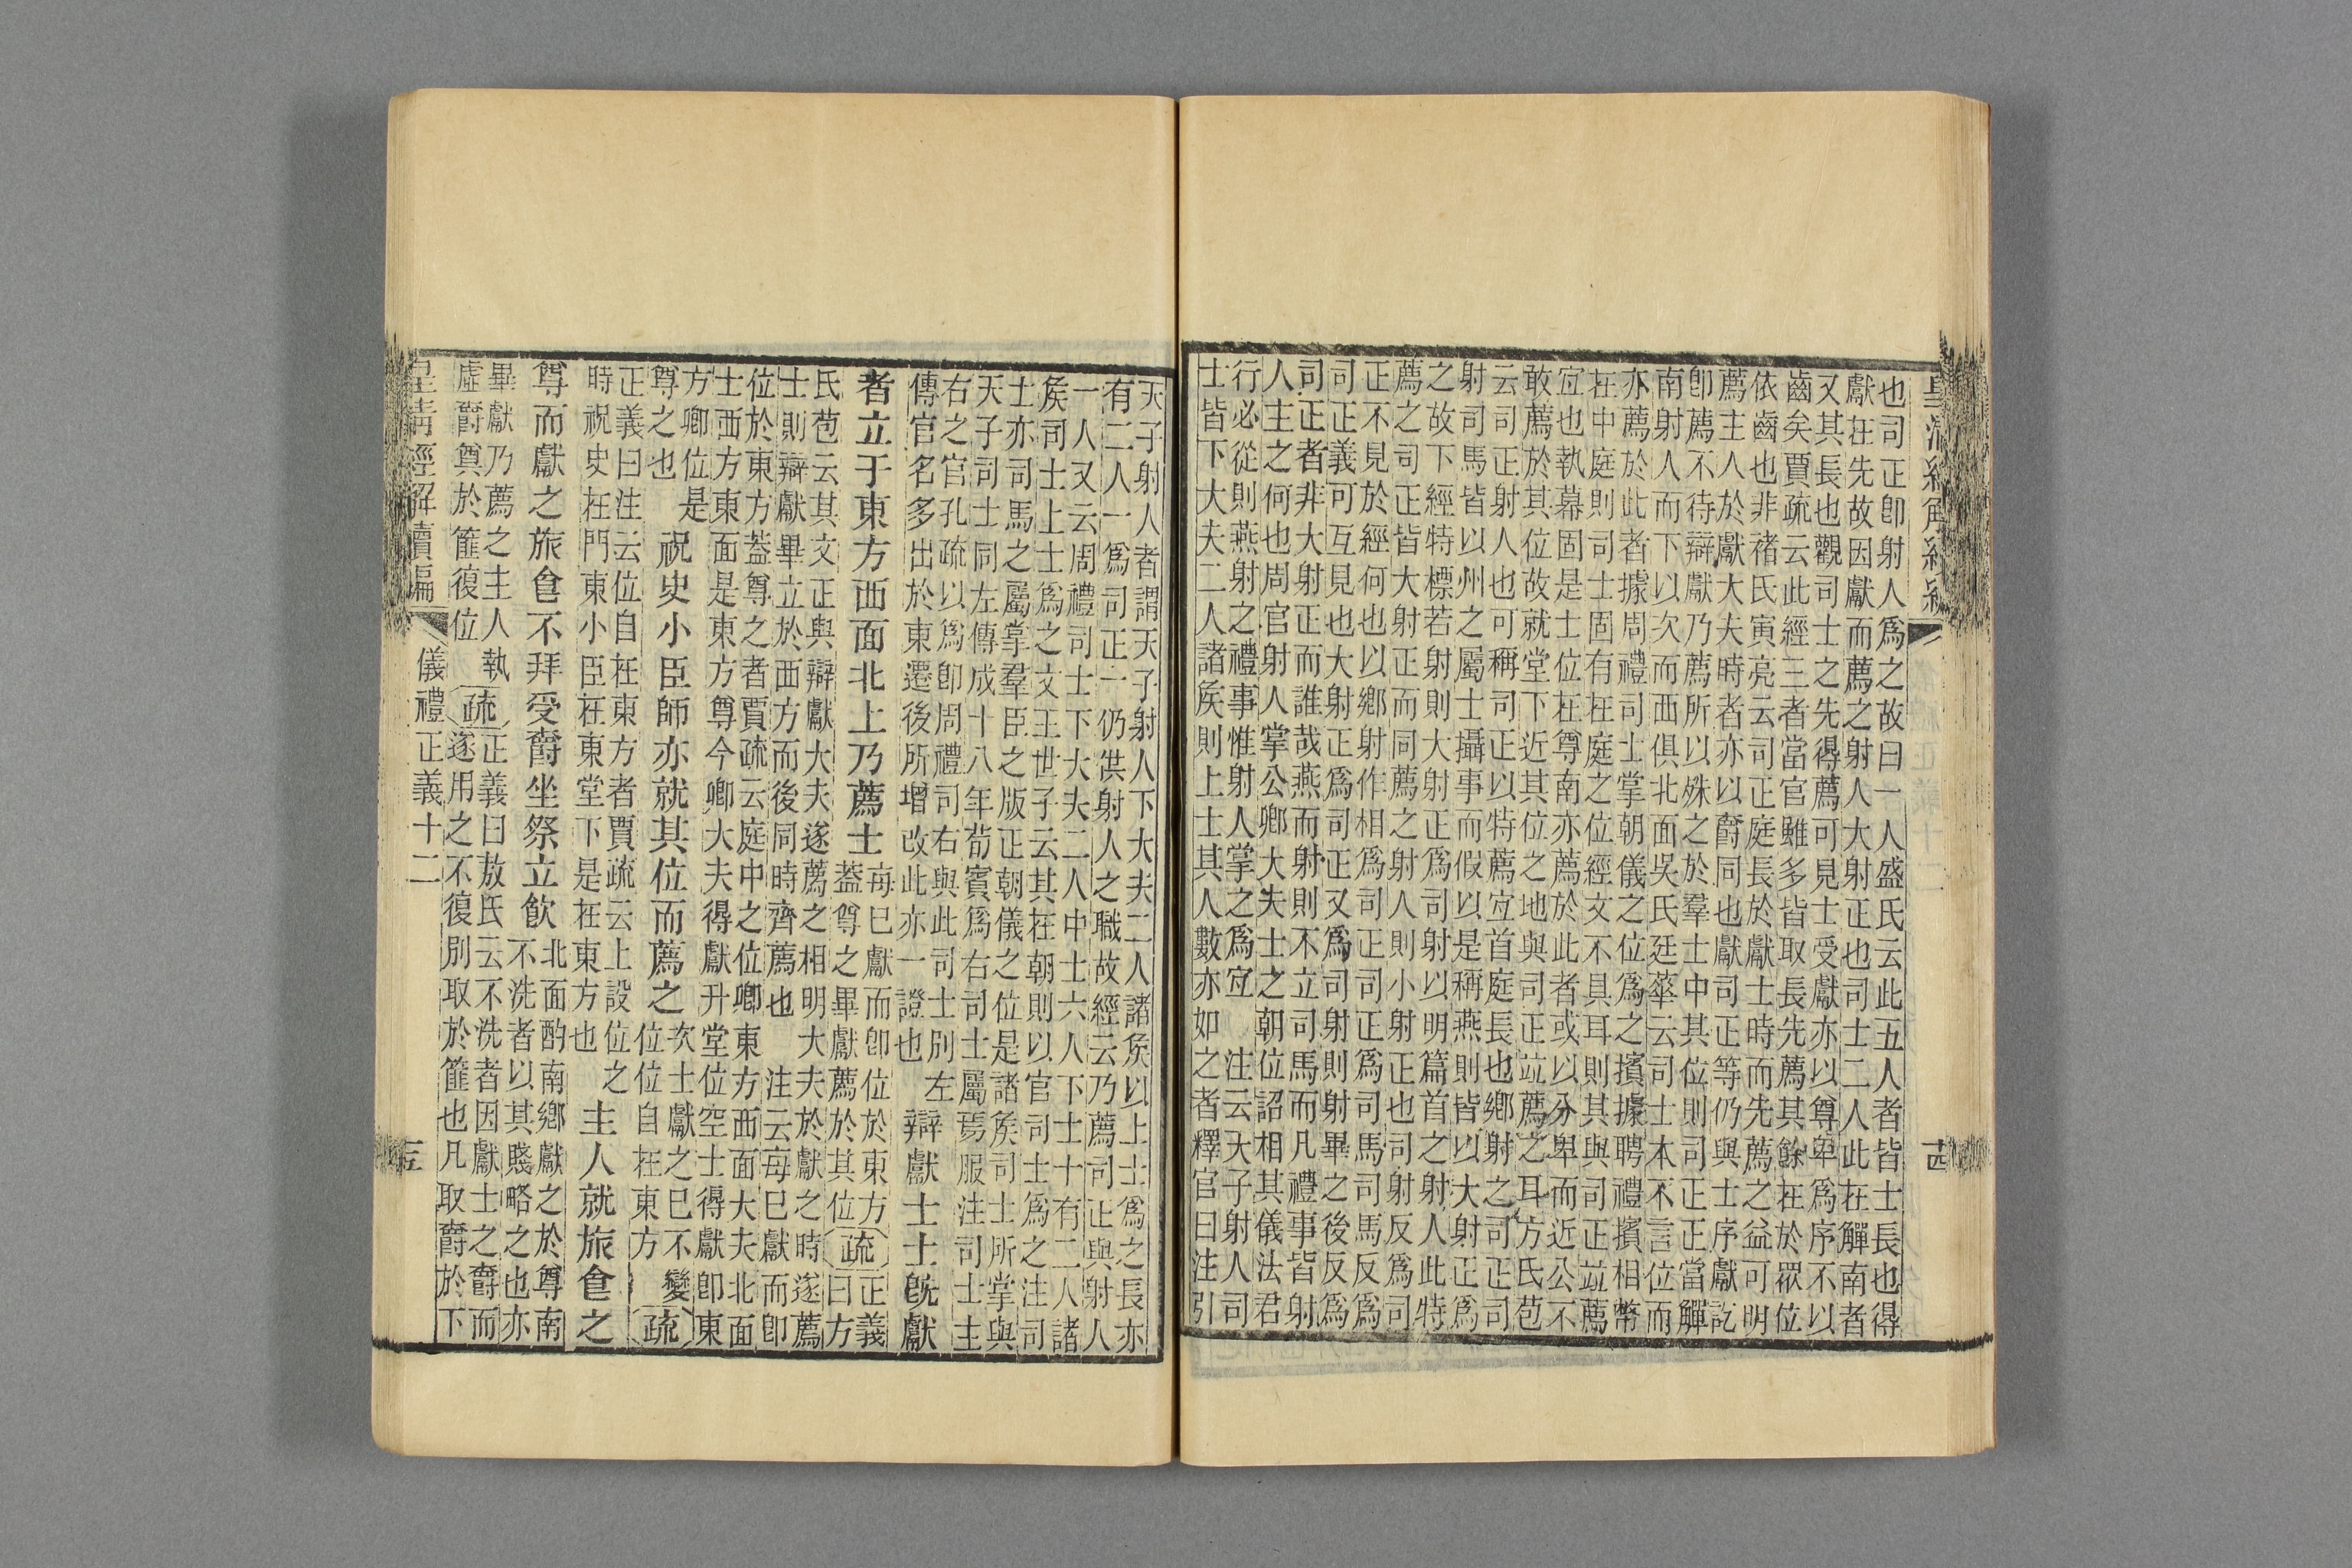 也司正卽射人爲之故曰一人盛氏云此五人者皆士長也得
獻在先故因獻而薦之射人大射正也司士二人此在觶南者
又其長也觀司士之先得薦可見士受獻亦以尊卑爲序不以
齒矣賈疏云此經三者當官雖多皆取長先薦其餘在於眾位
依齒也非褚氏寅亮云司正庭長於獻士時而先薦之益可明
薦主人於獻大夫時者亦以爵同也獻司正等仍與士序獻訖
卽薦不待辯獻乃薦所以殊之於羣士中其位則司正正當觶
南射人而下以次而西俱北面吳氏廷華云司士本不言位而
亦薦於此者據周禮司士掌朝儀之位爲之擯據聘禮擯相幣
在中庭則司士固有在庭之位經文不具耳則其與司正竝薦
宜也執幕固是士位在尊南亦薦於此者或以分卑而近公不
敢薦於其位故就堂下近其位之地與司正竝薦之耳方氏苞
云司正射人也可稱司正以特薦宜首庭長也鄉射之司正司
射司馬皆以州之屬士攝事而假以是稱燕則皆以大射正爲
之故下經特標若射則大射正爲司射以明篇首之射人此特
薦之司正皆大射正而同薦之射人則小射正也司射反爲司
正不見於經何也以鄉射作相爲司正司正爲司馬司馬反爲
司正義可互見也大射正爲司正又爲司射則射畢之後反爲
司正者非大射正而誰哉燕而射則不立司馬而凡禮事皆射
人主之何也周官射人掌公卿大夫士之朝位詔相其儀法君
行必從則燕射之禮事惟射人掌之爲宜　注云天子射人司
士皆下大夫二人諸侯則上士其人數亦如之者釋官曰注引
十四
天子射人者謂天子射人下大夫二人諸侯以上士爲之長亦
有二人一爲司正一仍供射人之職故經云乃薦司正與射人
一人又云周禮司士下大夫二人中士六人下士十有二人諸
侯司士上士爲之文王世子云其在朝則以官司士爲之注司
士亦司馬之屬掌羣臣之版正朝儀之位是諸侯司士所掌與
天子司士同左傳成十八年荀賓爲右司士屬焉服注司士主
右之官孔疏以爲卽周禮司右與此司士別　左
傳官名多出於東遷後所增改此亦一證也
辯獻士士旣獻
者立于東方西面北上乃薦士
每已獻而卽位於東方
蓋尊之畢獻薦於其位
疏
正義
曰方
氏苞云其文正與辯獻大夫遂薦之相明大夫於獻之時遂薦
士則辯獻畢立於西方而後同時齊薦也　注云每已獻而卽
位於東方蓋尊之者賈疏云庭中之位卿東方西面大夫北面
士西方東面是東方尊今卿大夫得獻升堂位空士得獻卽東
方卿位是
尊之也
祝史小臣師亦就其位而薦之
次士獻之已不變
位位自在東方
疏
正義曰注云位自在東方者賈疏云上設位之
時祝史在門東小臣在東堂下是在東方也
主人就旅食之
尊而獻之旅食不拜受爵坐祭立飮
北面酌南鄉獻之於尊南
不洗者以其賤略之也亦
畢獻乃薦之主人執
虛爵奠於篚復位
疏
正義曰敖氏云不洗者因獻士之爵而
遂用之不復別取於篚也凡取爵於下
皇清經解續編
儀禮正義十二
十五